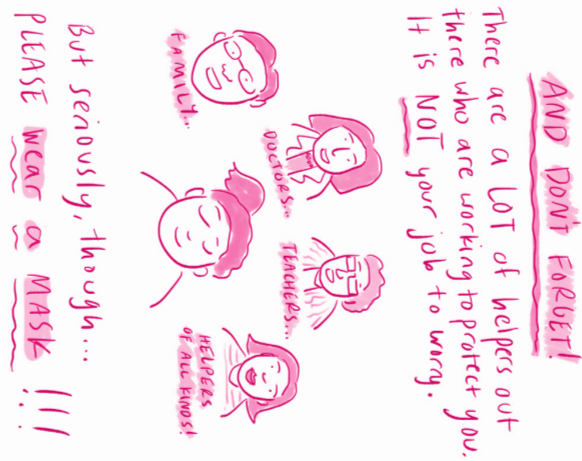 AND DON'T FORGET!
There are a LOT of helpers out
there who are working to protect you.
It is NOT your job to worry.
FAMILY...
DOCTORS...
TEACHERS...
HELPERS
OF ALL KINDS!
But seriously, though...
PLEASE wear a MASK !!!